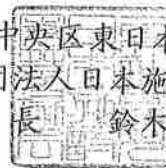 中央区東日本
法人日本施
長　鈴木